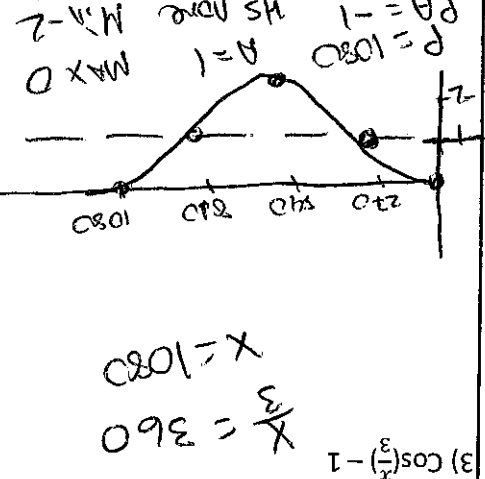 3) Cos(x/3) − 1
x/3 = 360
x = 1080
270 540 810 1080
-2
P = 1080 A = 1 MAX 0
PA = -1 HS none Min -2